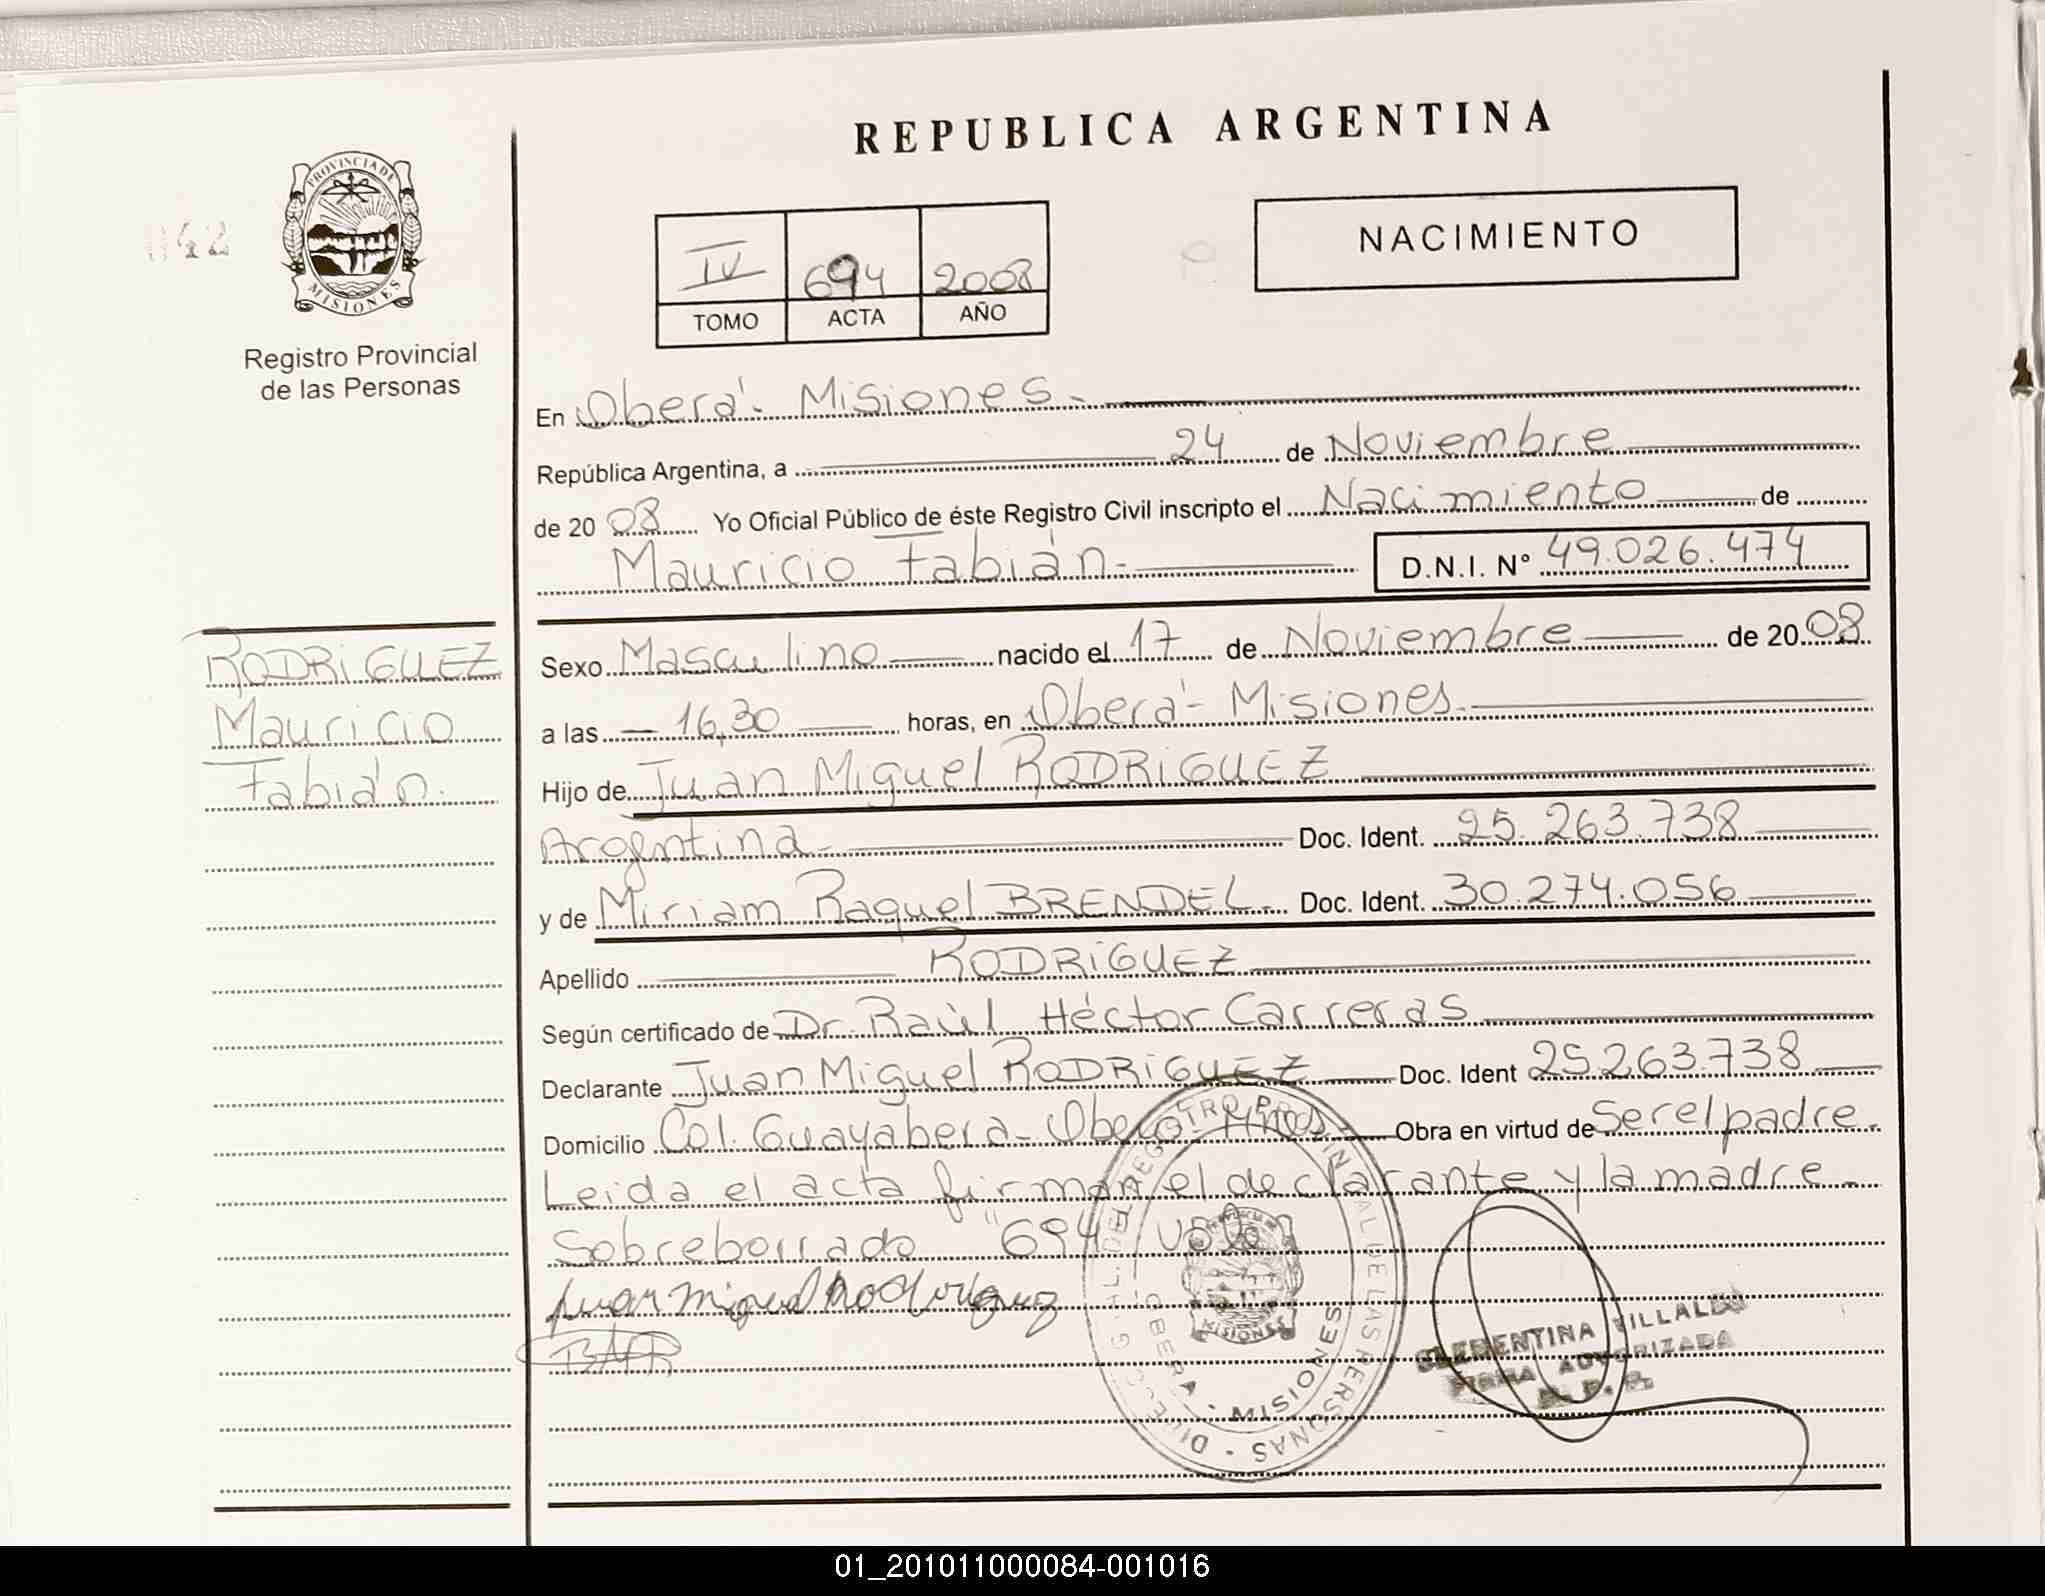 REPUBLICA ARGENTINA
PROVINCIA DE
MISIONES
Registro Provincial
de las Personas
IV 694 2008
TOMO ACTA AÑO
NACIMIENTO
En Oberá - Misiones.
República Argentina, a 24 de Noviembre
de 2008 Yo Oficial Público de éste Registro Civil inscripto el Nacimiento de
Mauricio Fabián - D.N.I. N° 49.026.474
RODRIGUEZ
Mauricio
Fabián.
Sexo Masculino nacido el 17 de Noviembre de 2008
a las 16,30 horas, en Oberá - Misiones.
Hijo de Juan Miguel RODRIGUEZ
Argentina - Doc. Ident. 25.263.738
y de Miriam Raquel BRENDEL - Doc. Ident. 30.274.056
Apellido RODRIGUEZ
Según certificado de Dr. Raúl Héctor Carreras
Declarante Juan Miguel RODRIGUEZ Doc. Ident 25.263.738
Domicilio Col. Guayabera - Oberá Mnes. Obra en virtud de Ser el padre.
Leida el acta firman el declarante y la madre
Sobreborrado "694" vale
Juan Miguel Rodriguez
CLEMENTINA VILLALBA
FIRMA AUTORIZADA
R. P. P.
OBERA - MISIONES
01_201011000084-001016